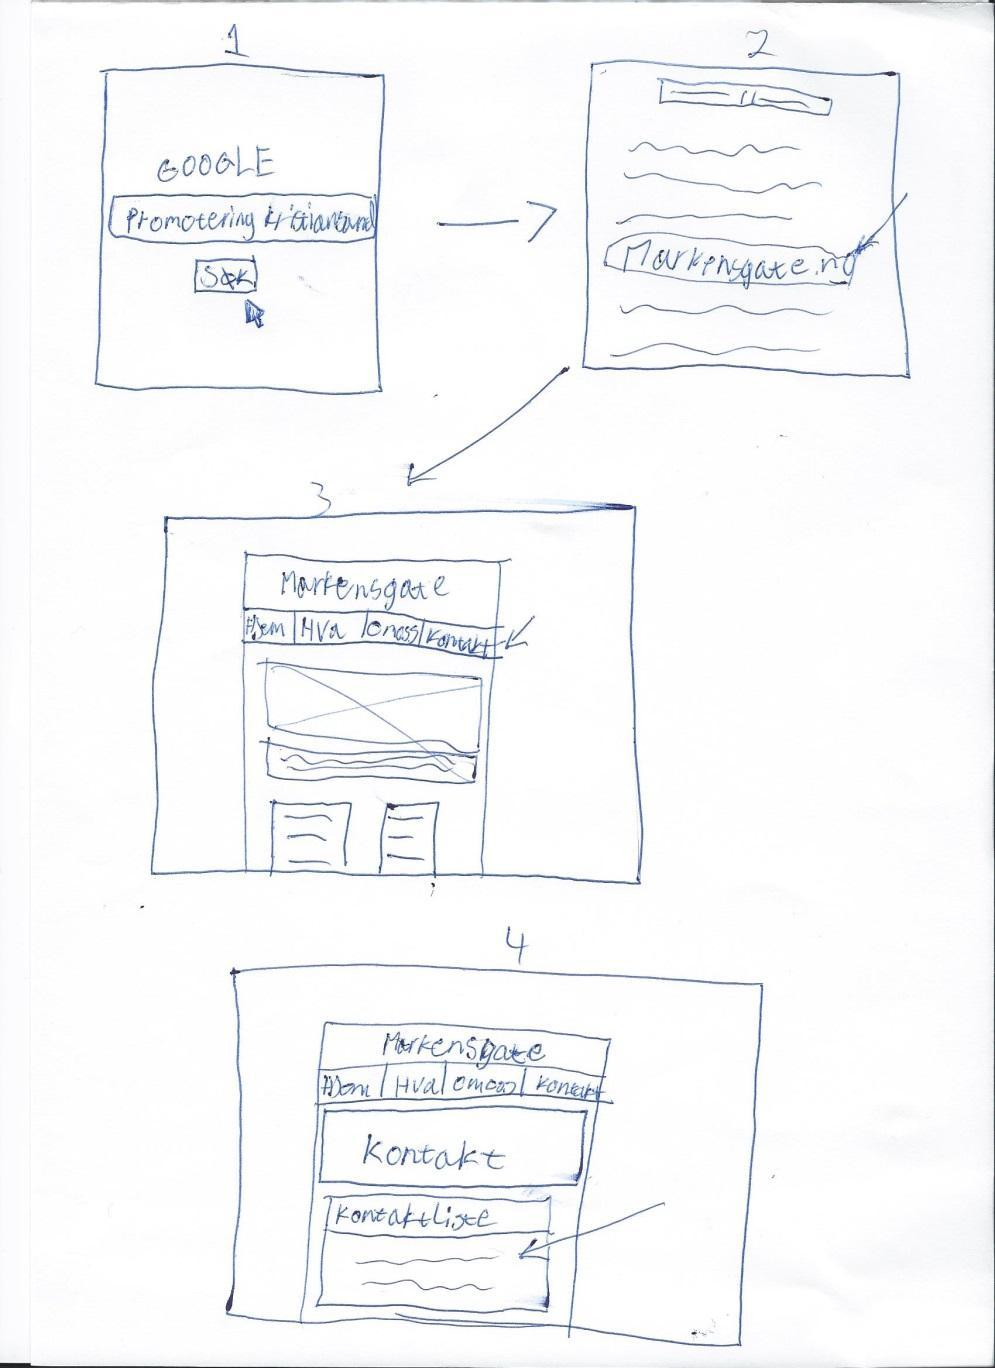 1
2
GOOGLE
Promotering kristiansand
Søk
Markensgate.no
3
Markensgate
Hjem Hva Omoss Kontakt
4
Markensgate
Hjem Hva Omoss Kontakt
Kontakt
KontaktListe